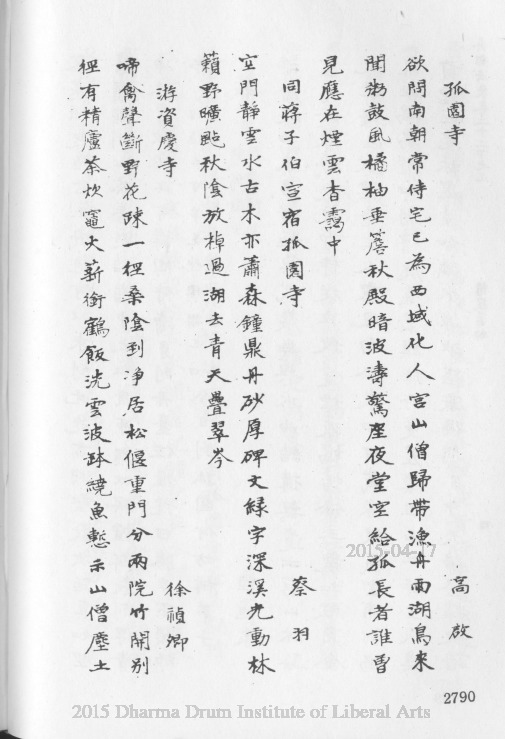 孤園寺 高啟
欲問南朝常侍宅已為西域化人宮山僧歸帶漁舟雨湖鳥來
聞粥鼓風橘柚垂簷秋殿暗波濤驚座夜堂空給孤長者誰曽
見應在煙雲杳靄中
同蔣子伯宣宿孤園寺 蔡羽
空門靜雲水古木亦蕭森鐘鼎丹砂厚碑文綠字深溪光動林
籟野曠颭秋陰放棹過湖去青天疊翠岑
游資慶寺 徐禎卿
啼禽聲斷野花陳一徑桑陰到淨居松偃重門分兩院竹開別
徑有精廬茶炊竈火薪銜鶴飯洗雲波缽繞魚慙示山僧塵土
2790
2015-04-17
2015 Dharma Drum Institute of Liberal Arts